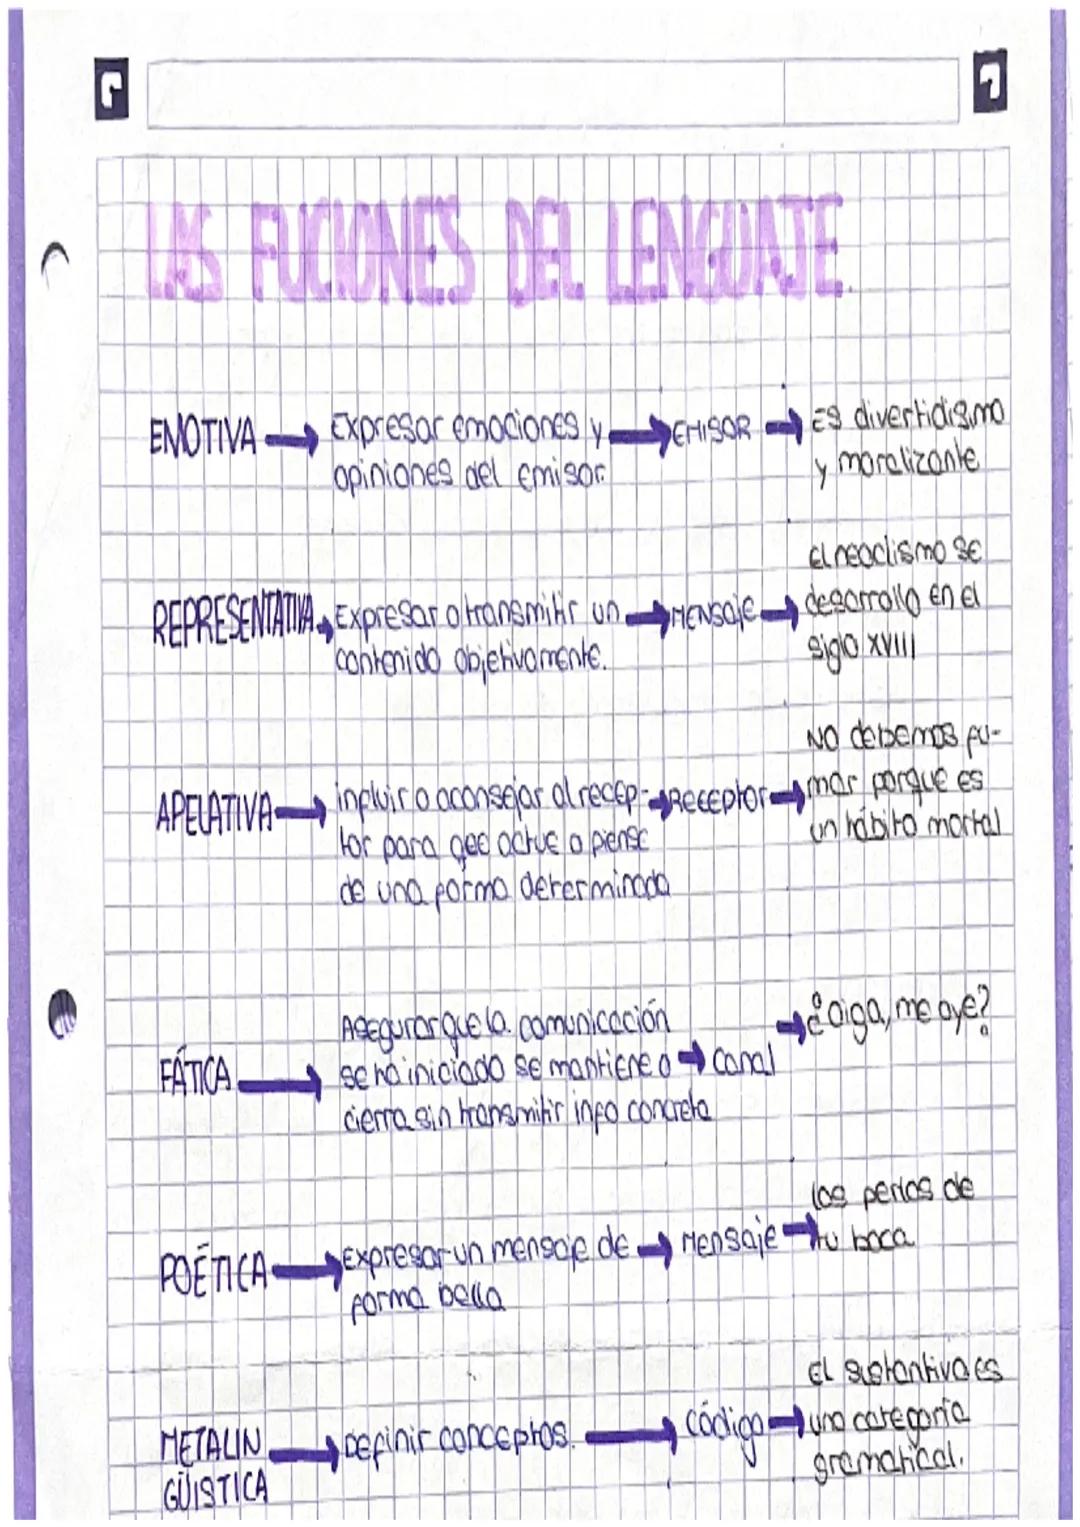 LAS FUCIONES DEL LENGUAJE.
EMOTIVA → Expresar emociones y → EMISOR → Es divertidismo
opiniones del emisor.
y moralizante
El neoclismo se
REPRESENTATIVA → Expresar o transmitir un → MENSaje → desarrollo en el
contenido objetivamente.
siglo XVIII
NO debemos fu-
APELATIVA → influir o aconsejar al recep- → Receptor → mar porque es
tor para que actue o piense
un hábito mortal
de una forma determinada
Asegurar que la comunicación
→ ¿Oiga, me oye?
FÁTICA → se ha iniciado se mantiene o → canal
cierra sin transmitir info concreta
las perlas de
POÉTICA → Expresar un mensaje de → Mensaje → tu boca
forma bella
El sustantivo es
METALIN → Definir conceptos. → código → una categoria
GÜISTICA
gramatical.